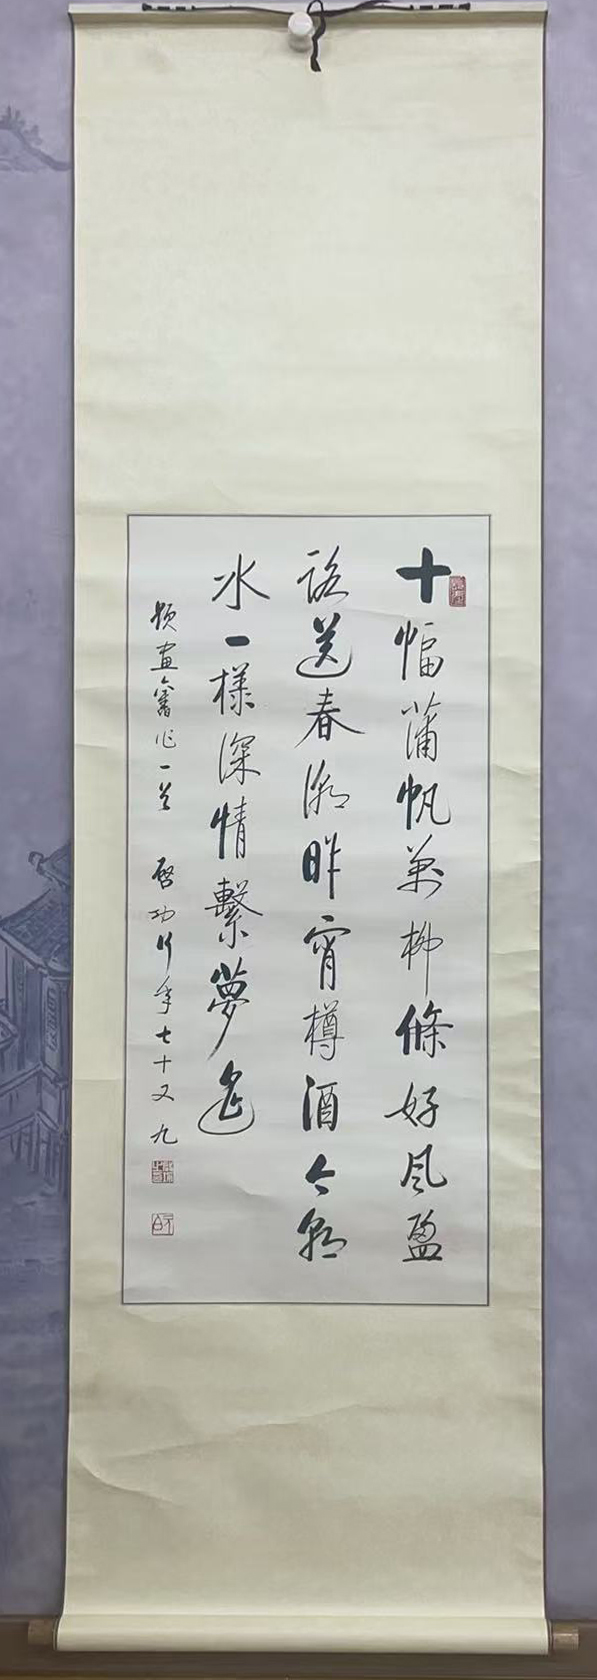 十幅蒲帆萬柳條好風盈
路送春潮昨宵樽酒今朝
水一樣深情繫夢遙
題畫舊作一首 啓功行年七十又九